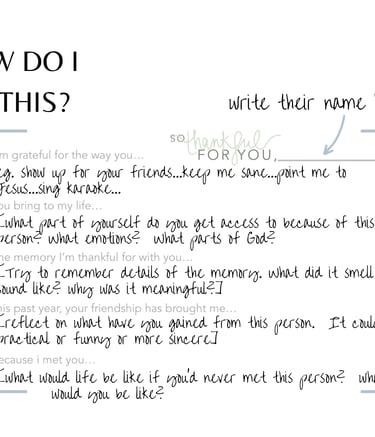 W DO I
THIS?
write their name
SO thankful
FOR YOU,
I'm grateful for the way you...
eg. show up for your friends...keep me sane...point me to
Jesus...sing karaoke...
You bring to my life...
[What part of yourself do you get access to because of this
person? What emotions? What parts of God?
One memory I'm thankful for with you...
[Try to remember details of the memory. What did it smell
sound like? Why was it meaningful?]
This past year, your friendship has brought me...
[reflect on what have you gained from this person. It could
practical or funny or more sincere]
Because i met you...
[What would life be like if you'd never met this person?
would you be like?